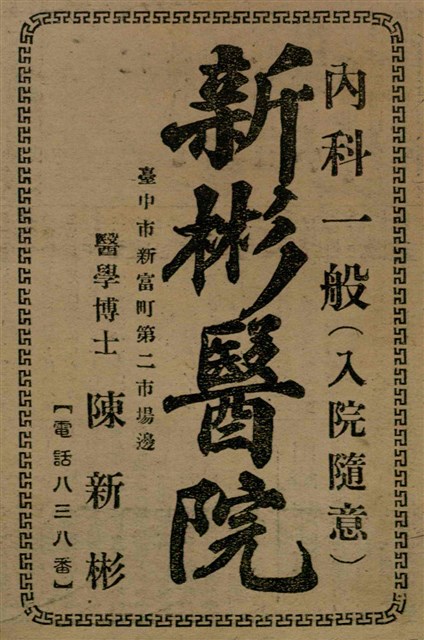 內科一般(入院隨意)
新彬醫院
臺中市新富町第二市場邊
醫學博士 陳新彬
【電話八三八番】